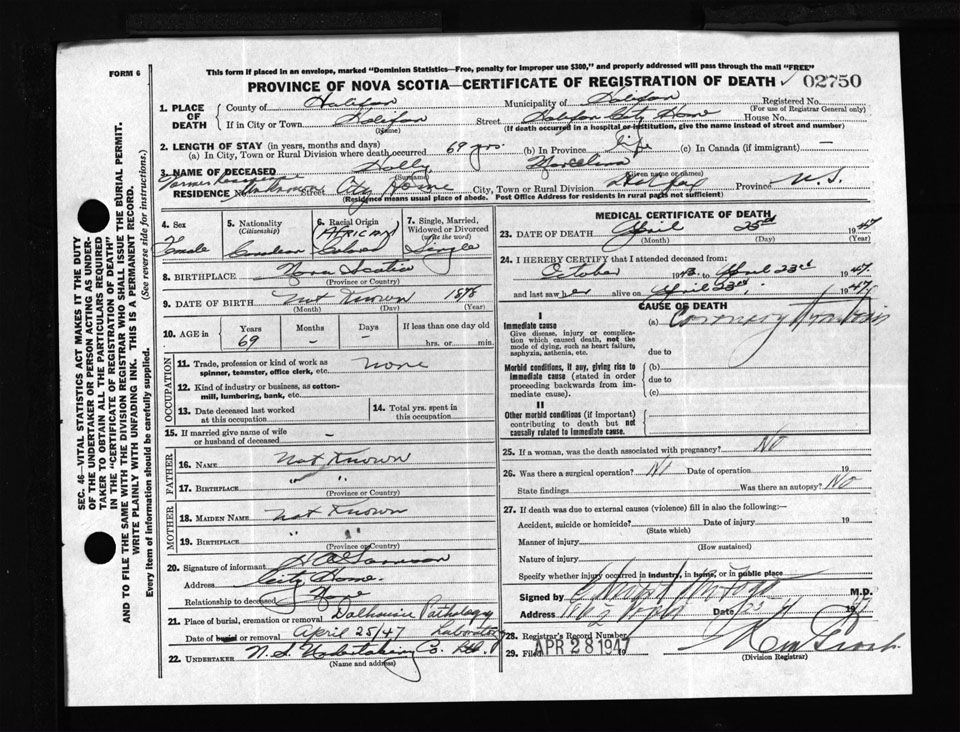 FORM 6
This form if placed in an envelope, marked "Dominion Statistics—Free, penalty for improper use $300," and properly addressed will pass through the mail "FREE"
PROVINCE OF NOVA SCOTIA—CERTIFICATE OF REGISTRATION OF DEATH
02750
SEC. 46—VITAL STATISTICS ACT MAKES IT THE DUTY
OF THE UNDERTAKER OR PERSON ACTING AS UNDER-
TAKER TO OBTAIN ALL THE PARTICULARS REQUIRED
IN THE "CERTIFICATE OF REGISTRATION OF DEATH"
AND TO FILE THE SAME WITH THE DIVISION REGISTRAR WHO SHALL ISSUE THE BURIAL PERMIT.
WRITE PLAINLY WITH UNFADING INK. THIS IS A PERMANENT RECORD.
Every item of information should be carefully supplied. (See reverse side for instructions.)
1. PLACE OF DEATH
County of Halifax Municipality of Halifax Registered No.
(For use of Registrar General only)
If in City or Town Halifax Street Halifax City Home House No.
(Name) (If death occurred in a hospital or institution, give the name instead of street and number)
2. LENGTH OF STAY (in years, months and days)
(a) In City, Town or Rural Division where death occurred 69 yrs. (b) In Province life (c) In Canada (if immigrant) —
3. NAME OF DECEASED Marcelina
(Surname)
RESIDENCE No. Unknown Street City Home City, Town or Rural Division Halifax Province N.S.
(Residence means usual place of abode. Post Office Address for residents in rural parts not sufficient)
4. Sex
Female
5. Nationality
(Citizenship)
Canadian
6. Racial Origin
(African)
Colored
7. Single, Married, Widowed or Divorced
(write the word)
Single
8. BIRTHPLACE Nova Scotia
(Province or Country)
9. DATE OF BIRTH Not Known 1878
(Month) (Day) (Year)
10. AGE in Years Months Days If less than one day old
69 – – hrs. or min.
OCCUPATION
11. Trade, profession or kind of work as spinner, teamster, office clerk, etc. None
12. Kind of industry or business, as cotton-mill, lumbering, bank, etc.
13. Date deceased last worked at this occupation
14. Total yrs. spent in this occupation
15. If married give name of wife or husband of deceased –
FATHER
16. NAME Not Known
17. BIRTHPLACE " "
(Province or Country)
MOTHER
18. MAIDEN NAME Not Known
19. BIRTHPLACE " "
(Province or Country)
20. Signature of informant
Address City Home
Relationship to deceased
21. Place of burial, cremation or removal Dalhousie Pathology Laboratory
Date of burial or removal April 25/47
22. UNDERTAKER N. S. Undertaking Co. Ltd.
(Name and address)
MEDICAL CERTIFICATE OF DEATH
23. DATE OF DEATH April 1947
(Month) (Day) (Year)
24. I HEREBY CERTIFY that I attended deceased from:
October 1943 to April 23rd 1947
and last saw her alive on April 23rd 1947
CAUSE OF DEATH
I
Immediate cause
Give disease, injury or complication which caused death, not the mode of dying, such as heart failure, asphyxia, asthenia, etc.
(a) Coronary Thrombosis
due to
Morbid conditions, if any, giving rise to immediate cause (stated in order proceeding backwards from immediate cause).
(b)
due to
(c)
II
Other morbid conditions (if important) contributing to death but not causally related to immediate cause.
25. If a woman, was the death associated with pregnancy? No
26. Was there a surgical operation? No Date of operation 19
State findings Was there an autopsy? No
27. If death was due to external causes (violence) fill in also the following:—
Accident, suicide or homicide? Date of injury 19
(State which)
Manner of injury
(How sustained)
Nature of injury
Specify whether injury occurred in industry, in home, or in public place
Signed by M.D.
Address Date 19
28. Registrar's Record Number
29. Filed APR 28 1947 19
(Division Registrar)